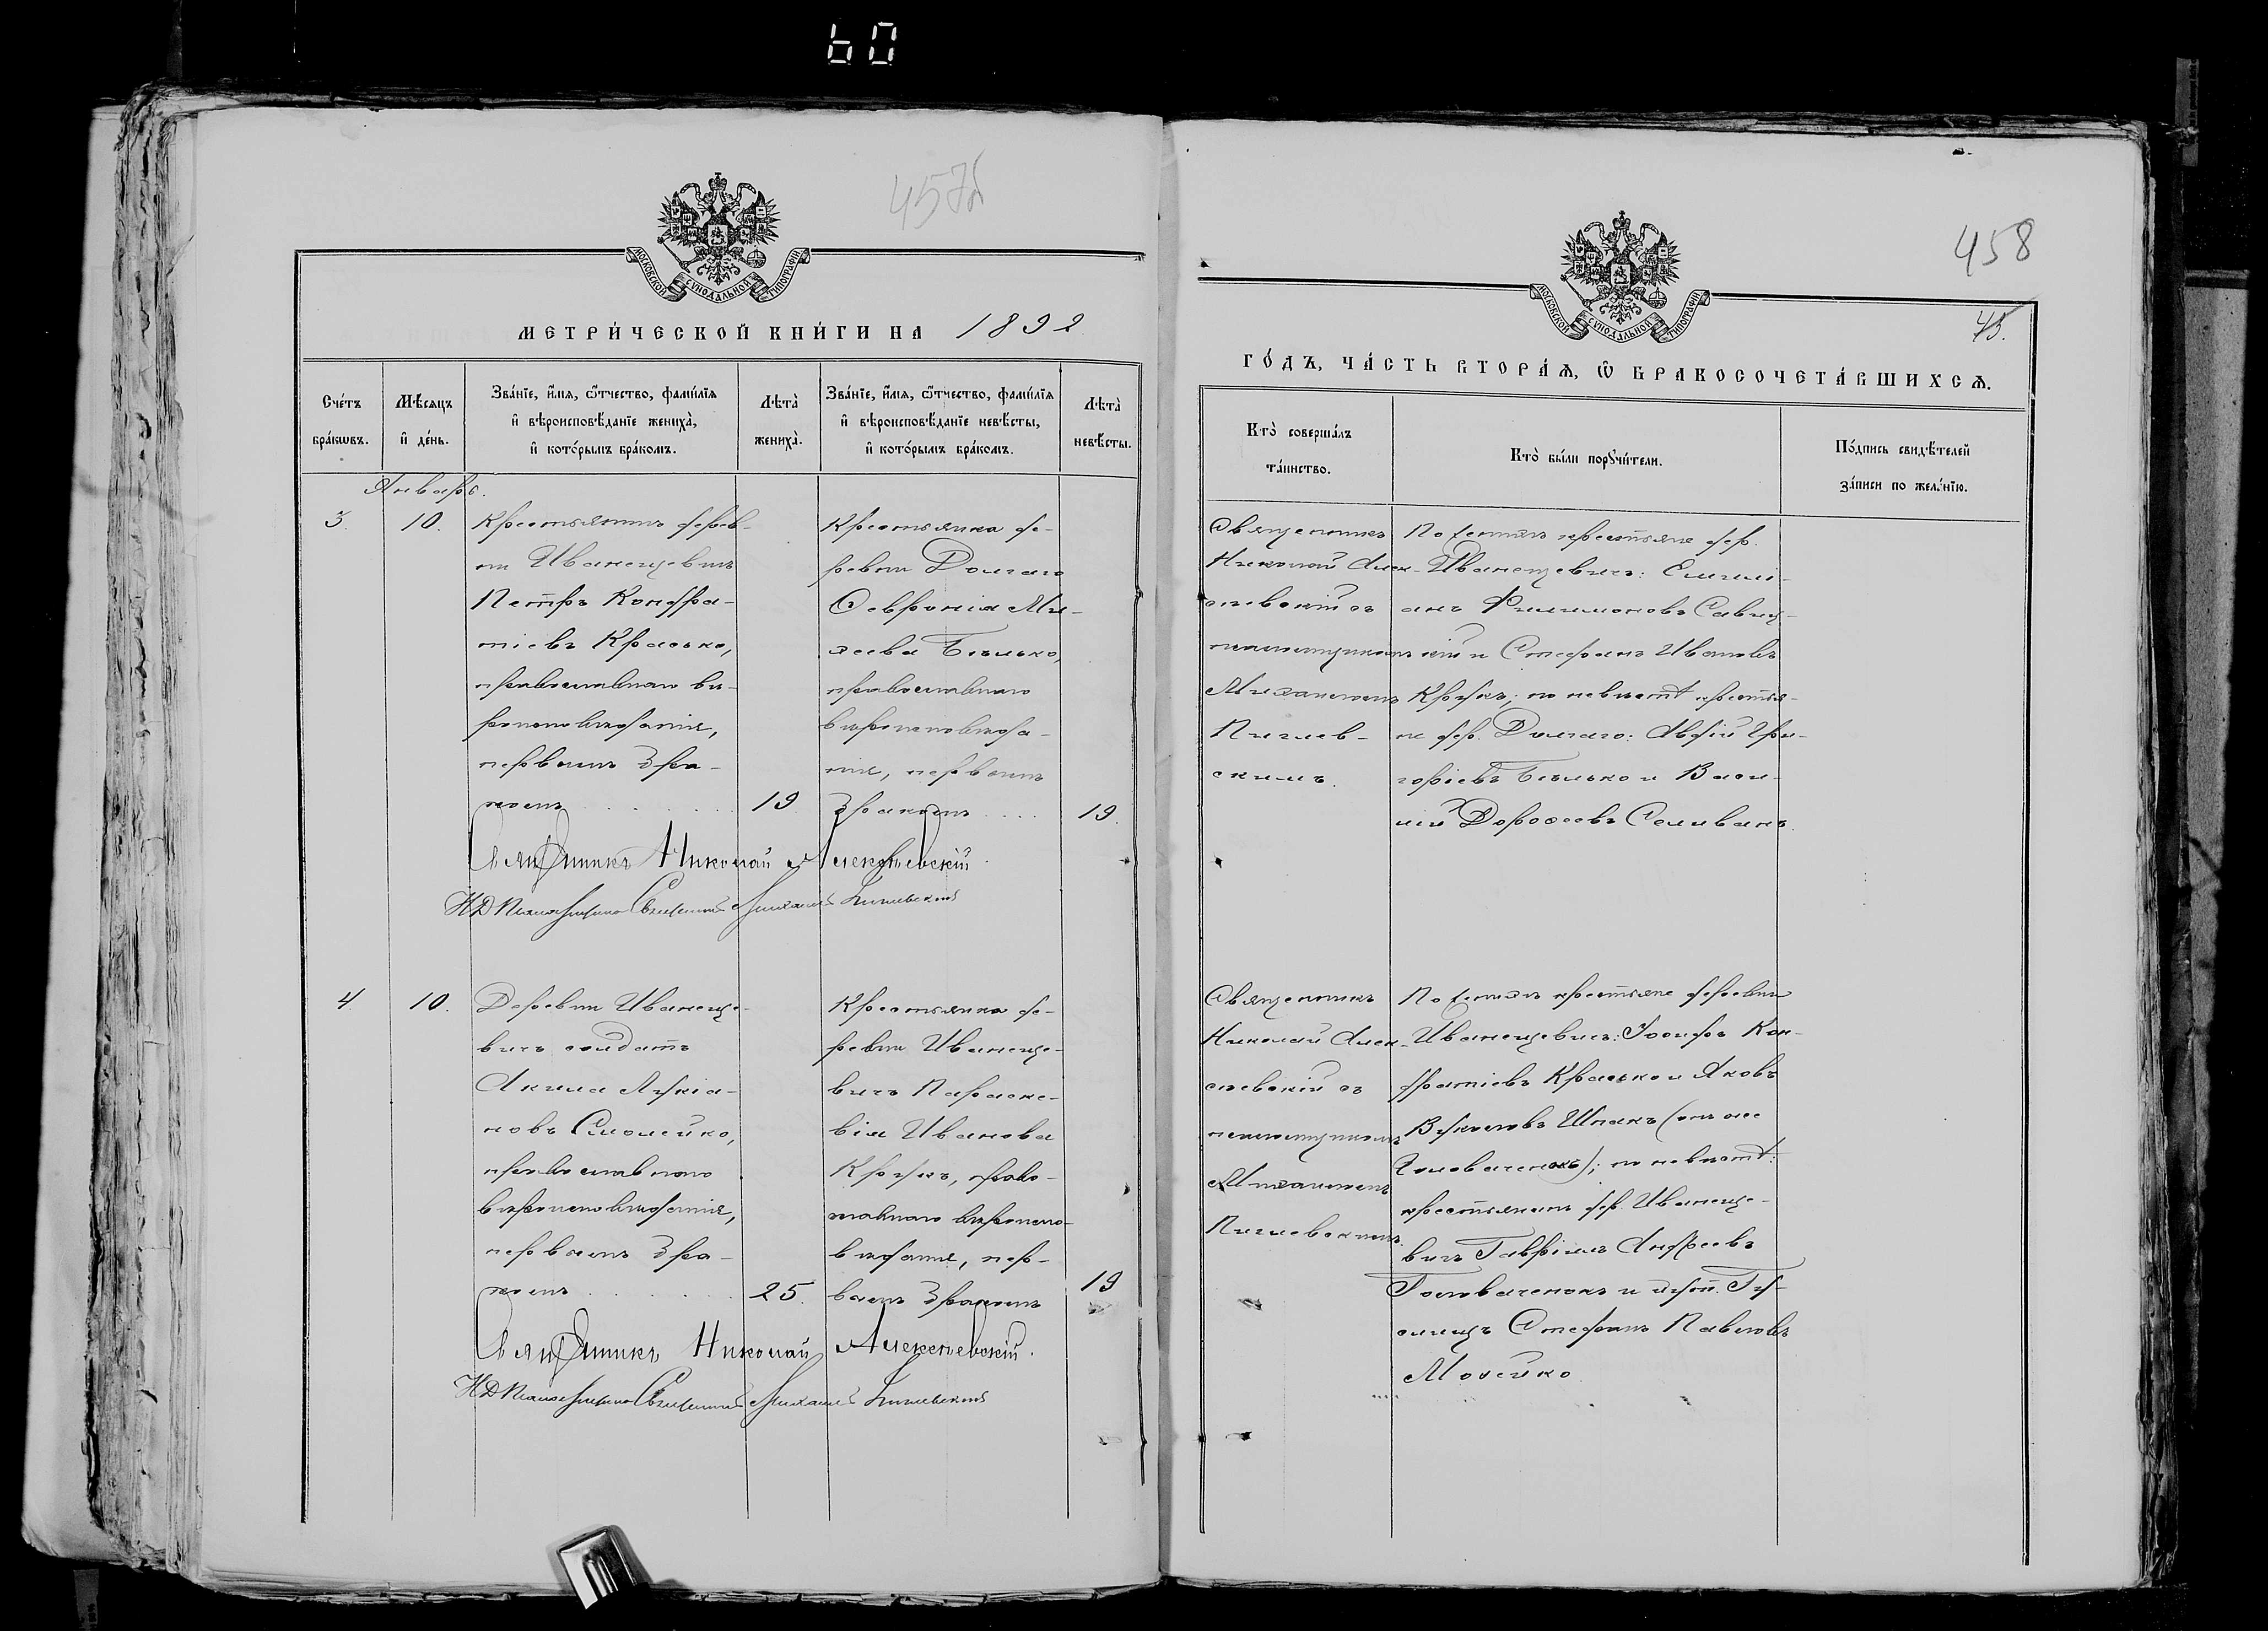 60
457б
МОСКОВСКОЙ СУНОДАЛЬНОЙ ТИПОГРАФІИ
МЕТРИ́ЧЕСКОЙ КНИ́ГИ НА 1892
Сче́тъ бра́кωвъ.
Мѣ́сяцъ и҆ де́нь.
Зва́нїе, и҆́мя, ѻ҆́тчество, фами́лїя и҆ вѣроисповѣ́данїе жениха̀, и҆ кото́рымъ бра́комъ.
Лѣта̀ жениха̀.
Зва́нїе, и҆́мя, ѻ҆́тчество, фами́лїя и҆ вѣроисповѣ́данїе невѣ́сты, и҆ кото́рымъ бра́комъ.
Лѣта̀ невѣ́сты.
Январь.
3. 10.
Крестьянинъ дерев-
ни Иванецевичъ
Петръ Кондра-
тіевъ Красько,
православнаго вѣ-
роисповѣданія,
первымъ бра-
комъ 19
Крестьянка де-
ревни Долгаго
Ѳевронія Ми-
хеева Бѣлько,
православнаго
вѣроисповѣда-
нія, первымъ
бракомъ 19.
Священникъ Николай Алексѣевскій.
И Д Псаломщика Священникъ Михаилъ Пигулевскій
4. 10.
Деревни Иванеце-
вичъ солдатъ
Акила Лукіа-
новъ Смолейко,
православнаго
вѣроисповѣданія,
первымъ бра-
комъ 25.
Крестьянка де-
ревни Иванеце-
вичъ Параске-
вія Иванова
Крукъ, право-
славнаго вѣроиспо-
вѣданія, пер-
вымъ бракомъ 19
Священникъ Николай Алексѣевскій.
И Д Псаломщика Священникъ Михаилъ Пигулевскій
458
45.
МОСКОВСКОЙ СУНОДАЛЬНОЙ ТИПОГРАФІИ
ГО́ДЪ, ЧА́СТЬ ВТОРА́Я, Ѡ҆ БРАКОСОЧЕТА́ВШИХСЯ.
Кто̀ соверша́лъ та́инство.
Кто̀ бы́ли порꙋчи́тели.
По́дпись свидѣ́телей за́писи по жела́нїю.
Священникъ
Николай Алек-
сѣевскій съ
псаломщикомъ
Михаиломъ
Пигулев-
скимъ.
По женихѣ крестьяне дер.
Иванецевичъ: Емили-
анъ Филимоновъ Савиц-
кій и Стефанъ Ивановъ
Крукъ; по невѣстѣ крестья-
не дер. Долгаго: Авдій Гри-
горіевъ Бѣлько и Васи-
лій Дороѳеевъ Селиванъ.
Священникъ
Николай Алек-
сѣевскій съ
псаломщикомъ
Михаиломъ
Пигулевскимъ.
По женихѣ крестьяне деревни
Иванецевичъ: Іосифъ Кон-
дратіевъ Красько и Яковъ
Шпакъ (онъ же
Головаченокъ); по невѣстѣ:
крестьянинъ дер. Иванеце-
вичъ Гавріилъ Андреевъ
Головаченокъ и
Стефанъ Павловъ
Мосейко